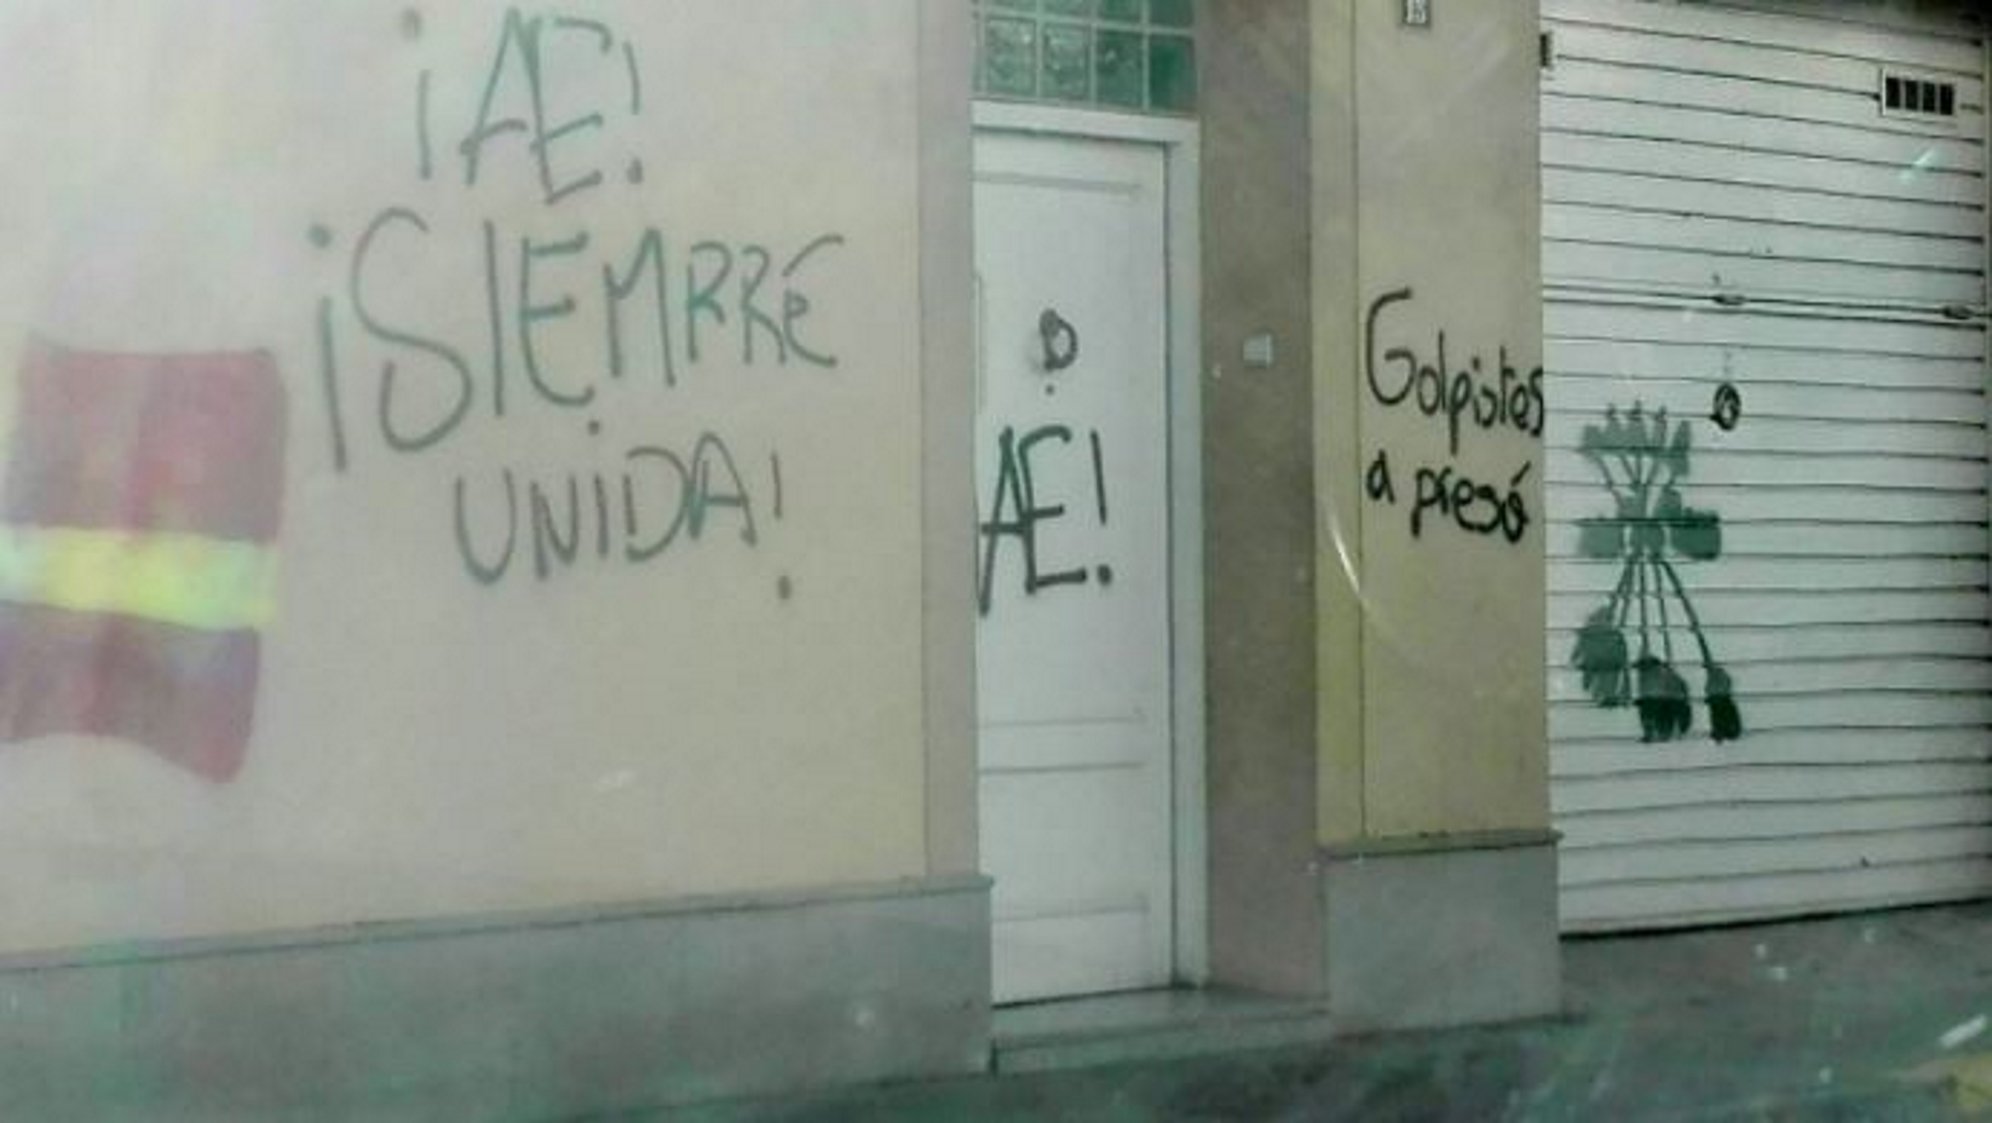 ¡AE!
¡SIEMPRE
UNIDA!
AE!
Golpistas
a presó